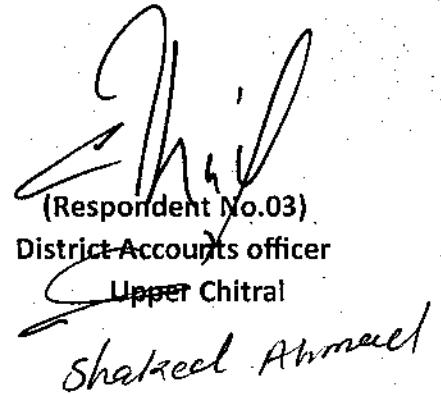 (Respondent No.03)
District Accounts officer
Upper Chitral
Shakeel Ahmad